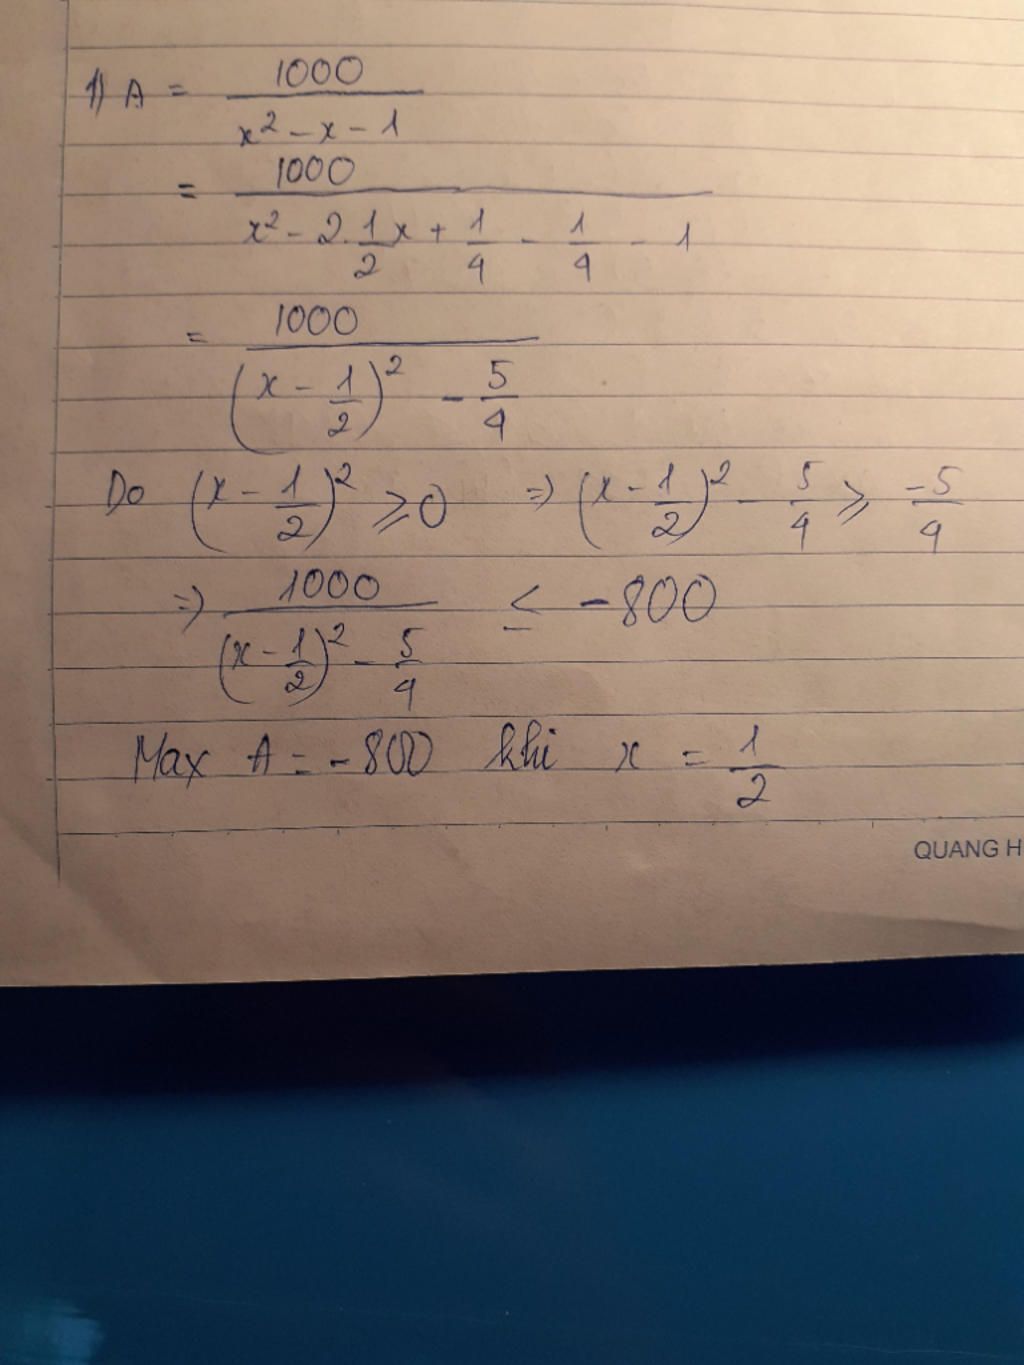 1) A = 1000 / (x² - x - 1)
= 1000 / (x² - 2.1/2x + 1/4 - 1/4 - 1)
= 1000 / ((x - 1/2)² - 5/4)
Do (x - 1/2)² ⩾ 0 => (x - 1/2)² - 5/4 ⩾ -5/4
=> 1000 / ((x - 1/2)² - 5/4) ≤ -800
Max A = -800 khi x = 1/2
QUANG H